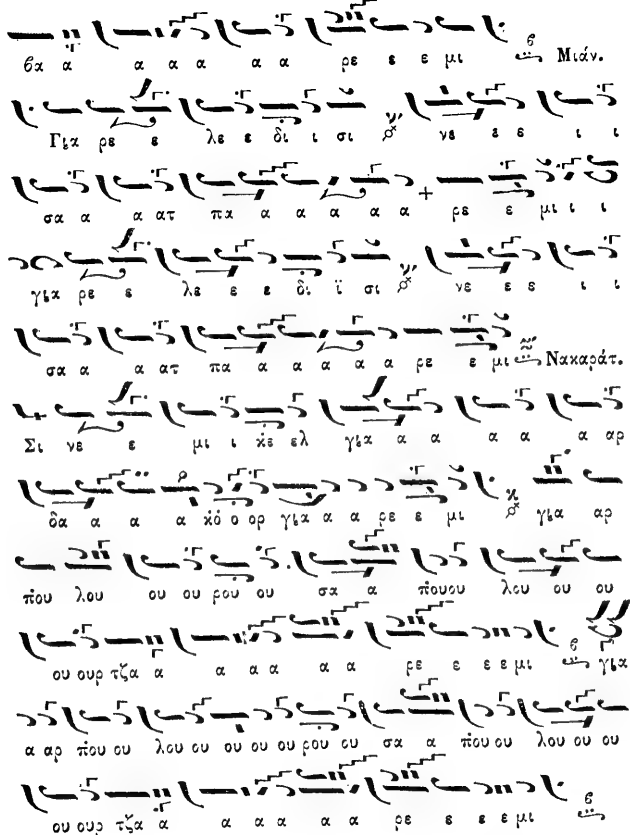 βα α α α α α α ρε ε ε μι Μιάν.
Για ρε ε λε ε δι ι σι νε ε ε ι ι
σα α α ατ πα α α α α α ρε ε μι ι ι
για ρε ε λε ε ε δι ϊ σι νε ε ε ι ι
σα α α ατ πα α α α α α ρε ε μι Νακαράτ.
Σι νε ε μι ι κε ελ για α α α α α αρ
δα α α α κό ο ορ για α α ρε ε μι για αρ
που λου ου ου ρου ου σα α πουου λου ου ου
ου ουρ τζα α α α α α α ρε ε ε ε μι για
α αρ που ου λου ου ου ου ου ρου ου σα α που ου λου ου ου
ου ουρ τζα α α α α α α ρε ε ε ε μι